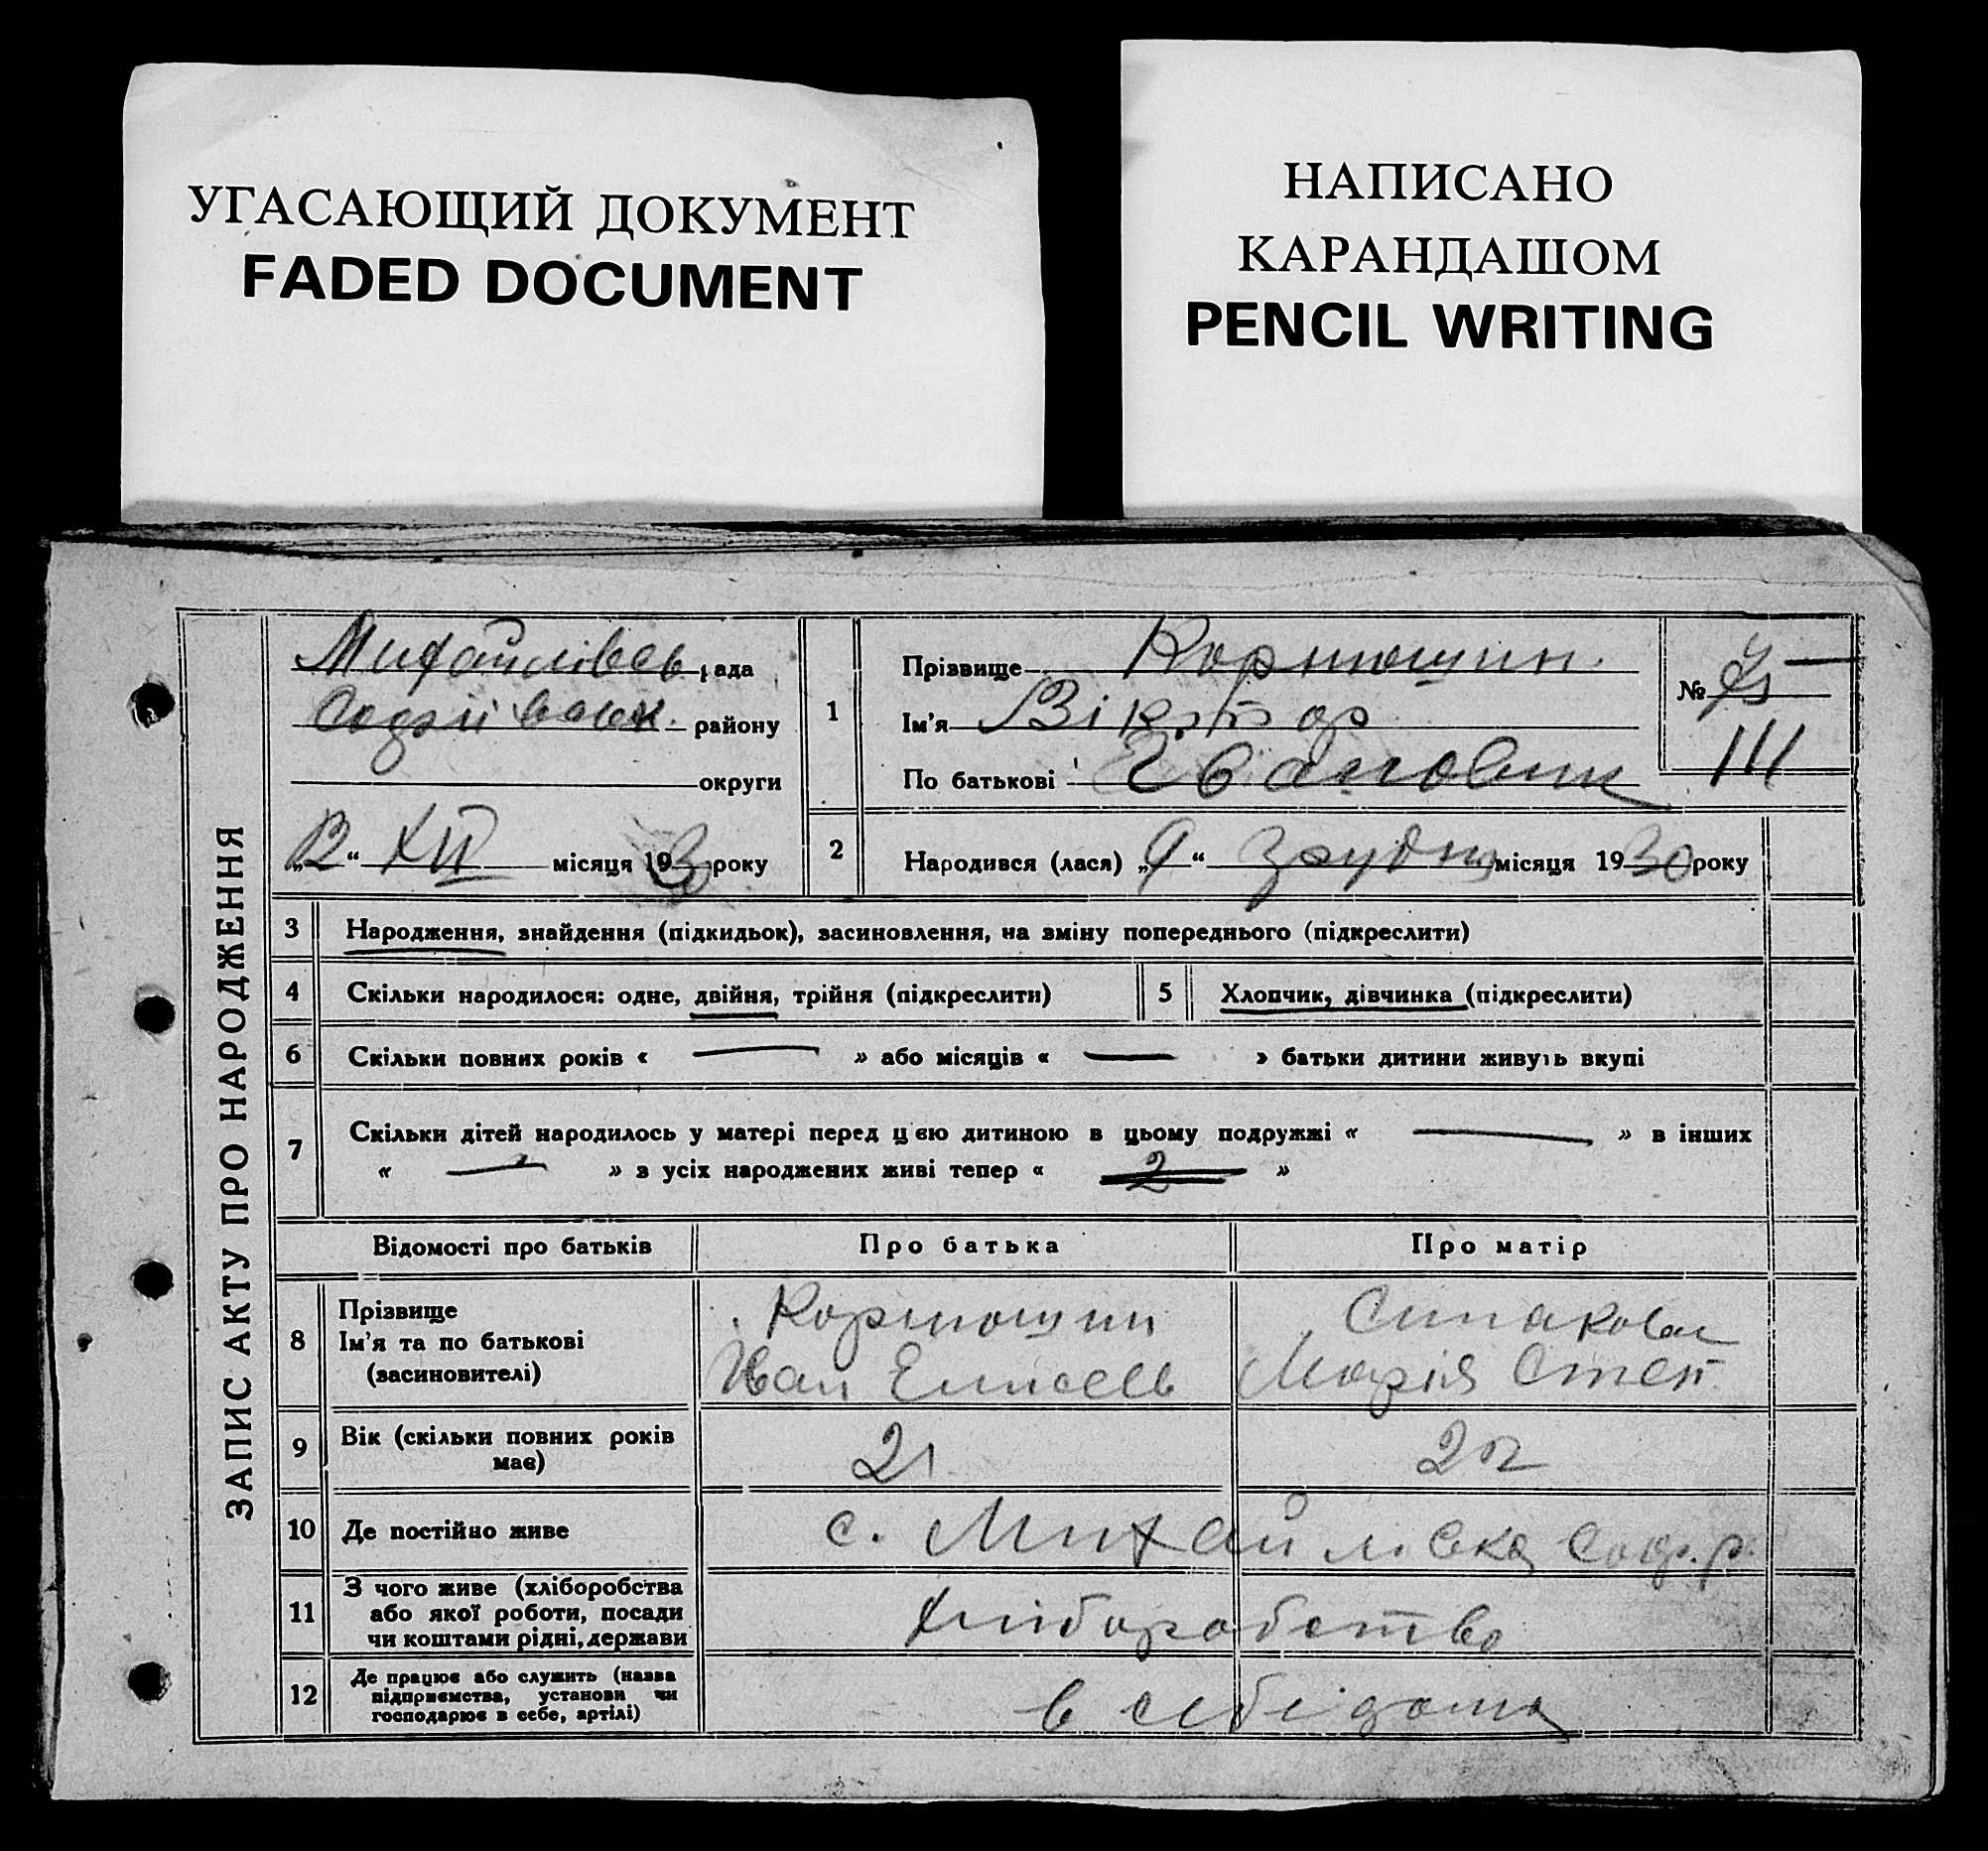 УГАСАЮЩИЙ ДОКУМЕНТ
FADED DOCUMENT
НАПИСАНО
КАРАНДАШОМ
PENCIL WRITING
ЗАПИС АКТУ ПРО НАРОДЖЕННЯ
Михайлівсь рада
району
округи
„12“ XII місяця 1930 року
1
Прізвище Кормошин
Ім'я Віктор
По батькові Іванович
№
111
2 Народився (лася) „9“ грудня місяця 1930 року
3 Народження, знайдення (підкидьок), засиновлення, на зміну попереднього (підкреслити)
4 Скільки народилося: одне, двійня, трійня (підкреслити) 5 Хлопчик, дівчинка (підкреслити)
6 Скільки повних років « — » або місяців « — » батьки дитини живуть вкупі
7 Скільки дітей народилось у матері перед цією дитиною в цьому подружжі « — » в інших
« — » з усіх народжених живі тепер « 2 »
Відомості про батьків Про батька Про матір
8 Прізвище
Ім'я та по батькові
(засиновителі)
Кормошин
Іван Елисеев
Марія Степ.
9 Вік (скільки повних років
має)
21 22
10 Де постійно живе с. Михайлівка Соф. р.
11 З чого живе (хліборобства
або якої роботи, посади
чи коштами рідні, держави
Хліборобство
12 Де працює або служить (назва
підприємства, установи чи
господарює в себе, артілі)
в себі дома